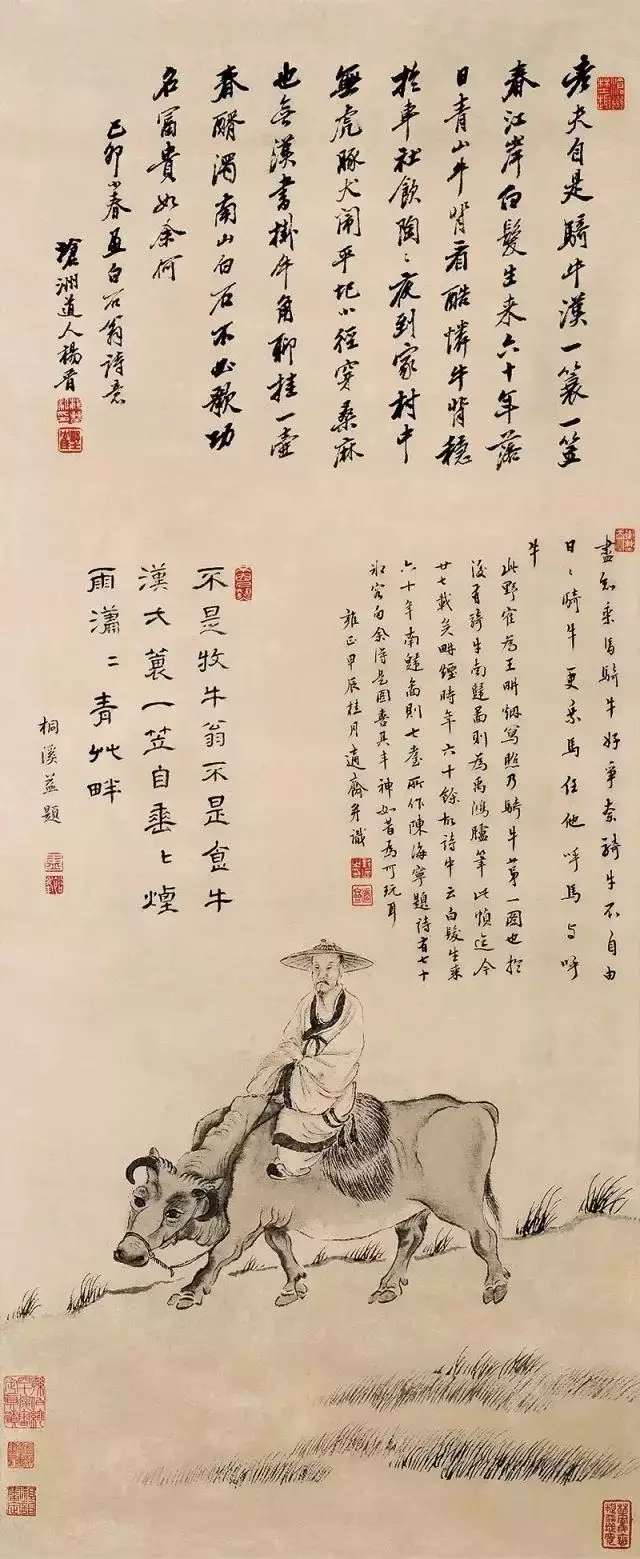 老夫自是騎牛漢一簑一笠
春江岸白髮生来六十年落
日青山牛背看酷憐牛背穩
於車社飲陶〻夜到家村中
無虎豚犬閙平圯小徑穿桑麻
也無漢書掛牛角聊挂一壺
春醑濁南山白石不必歌功
名富貴如余何
己卯小春白石翁詩意
洲道人楊晋
盡知乘馬騎牛好爭奈騎牛不自由
日〻騎牛更乘馬任他呼馬与呼
牛
此野寉為王畊烟寫照乃騎牛第一圖也於
後有騎牛南還啚則為禹鴻臚筆此幀迄今
廿七載矣畊煙時年六十餘故詩牛云白髮生来
六十年南還啚則七耋所作陳海寧題詩有七十
客句余得是圖喜其丰神如昔為可玩耳
雍正甲辰桂月適齋并識
不是牧牛翁不是食牛
漢弋蓑一笠自垂〻煙
雨瀟〻青艸畔
桐溪益題